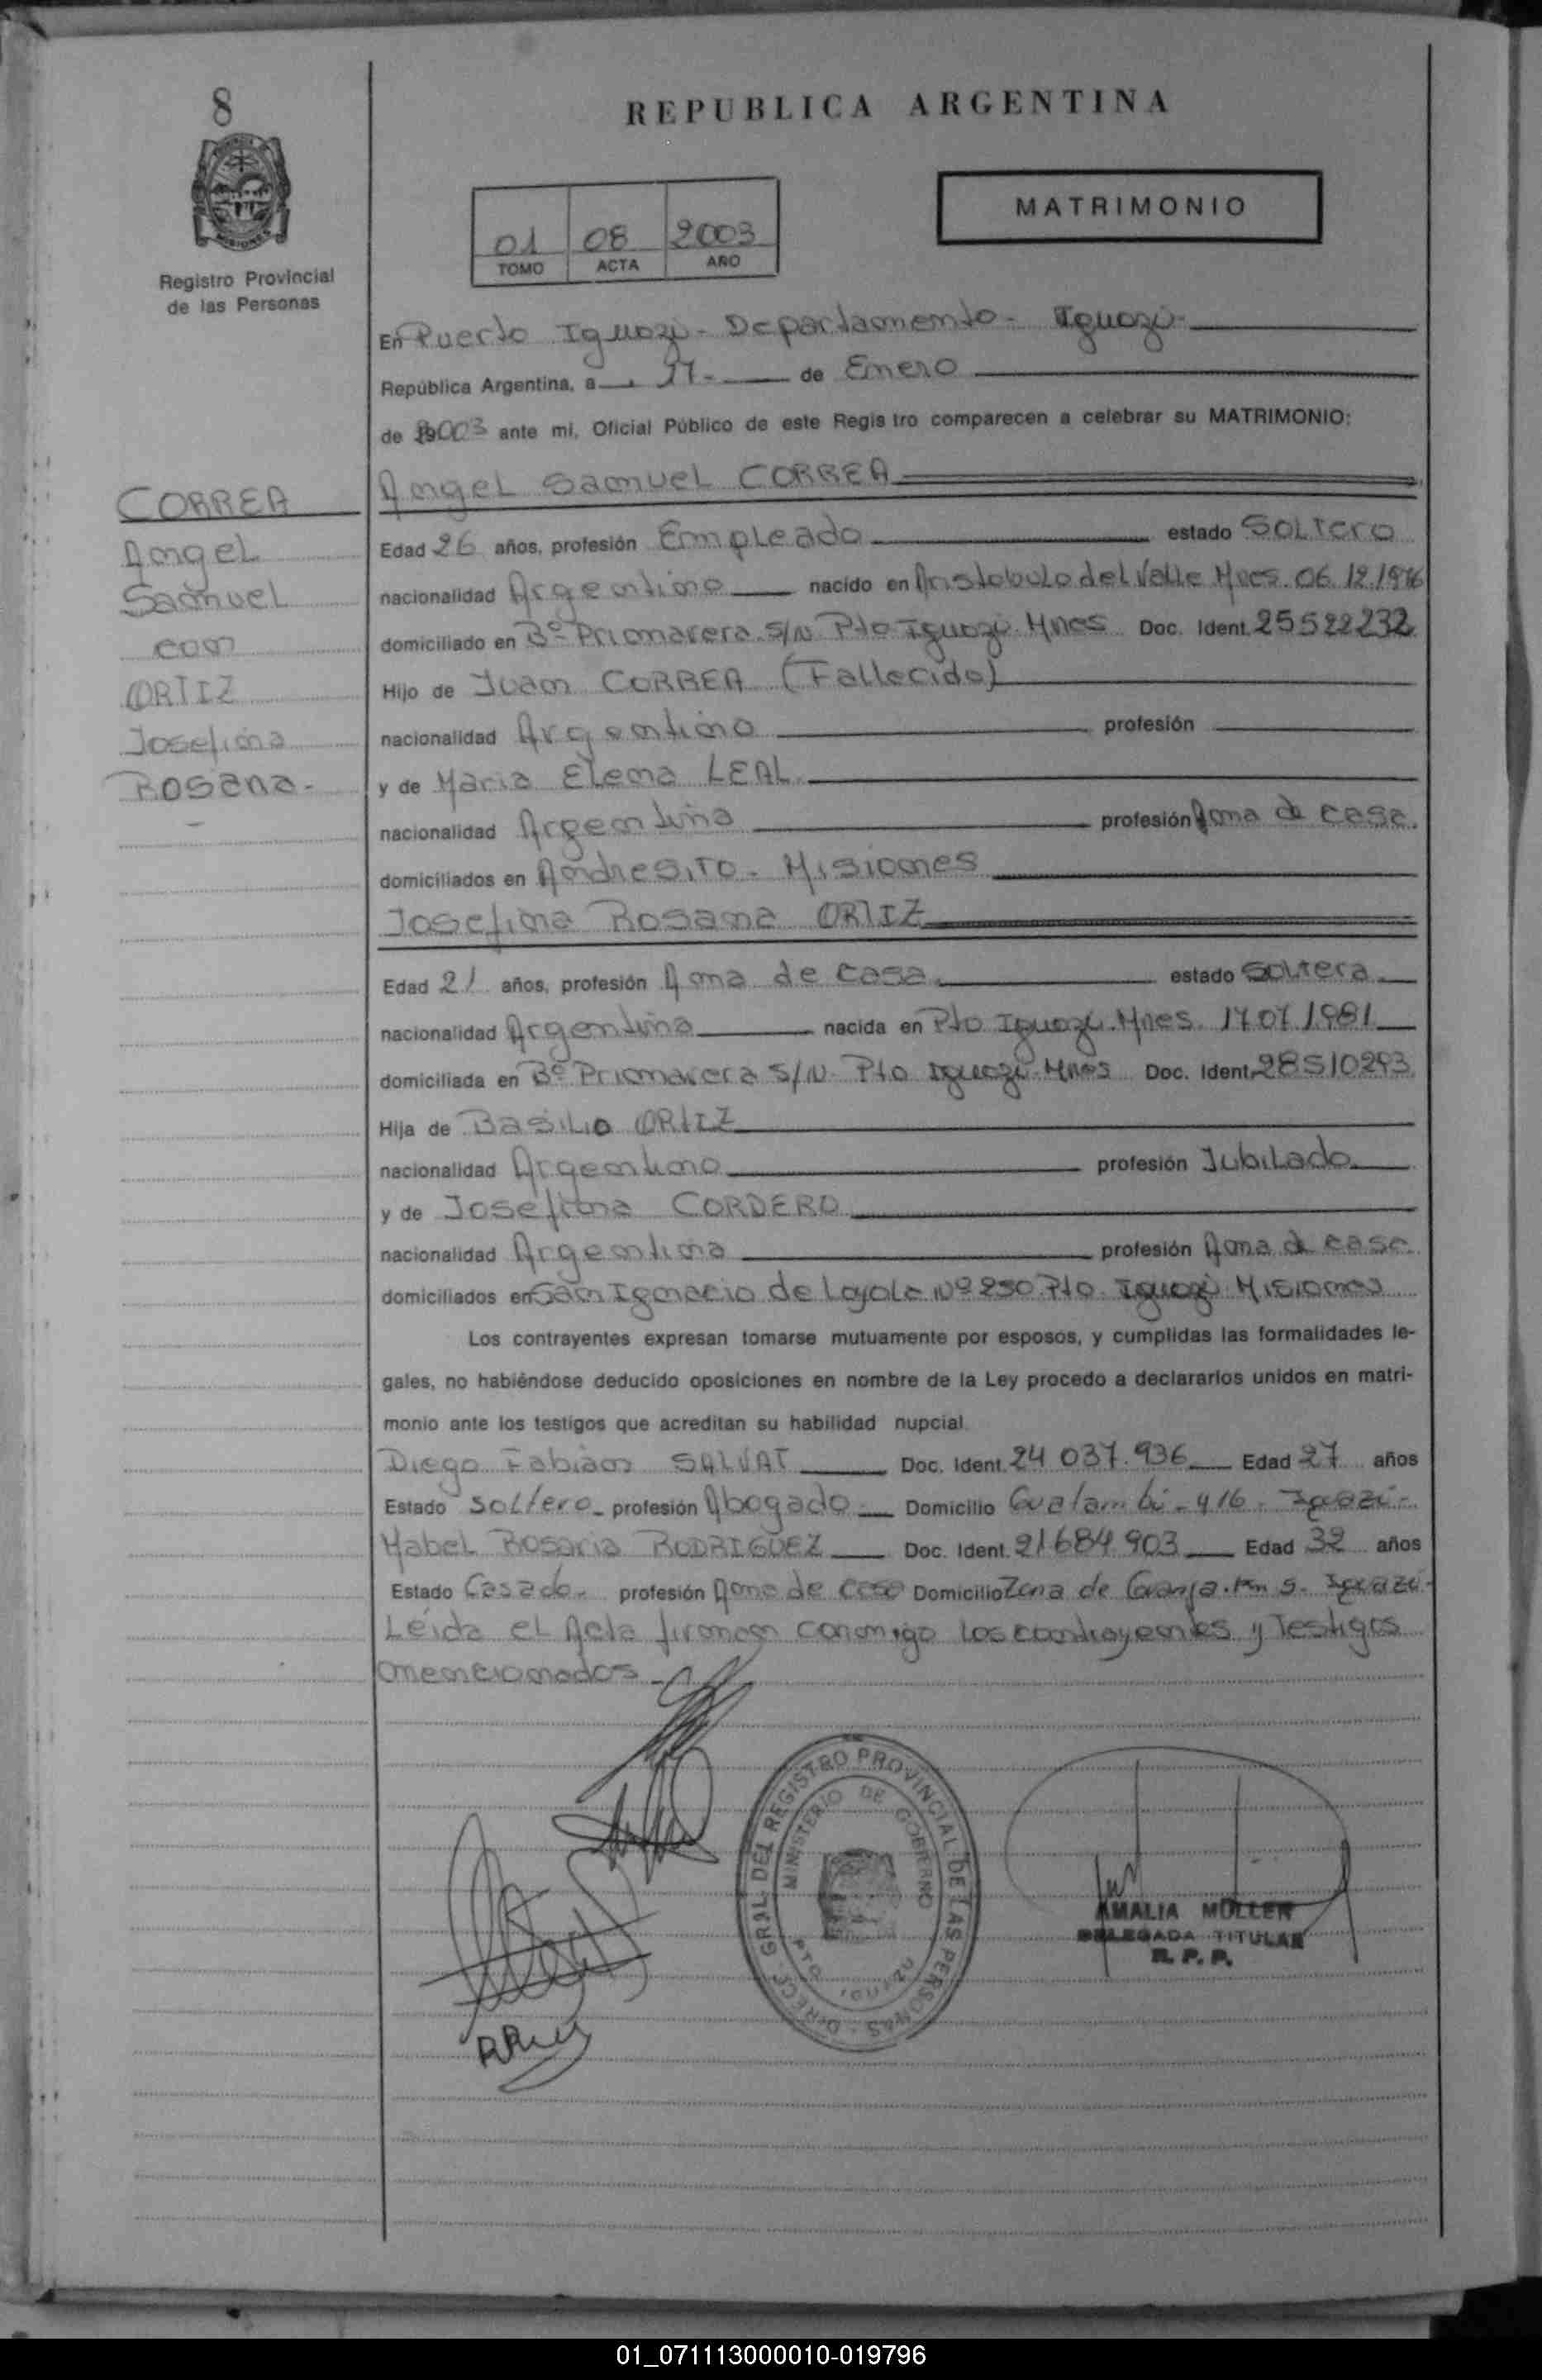 8
REPUBLICA ARGENTINA
MATRIMONIO
01 08 2003
TOMO ACTA AÑO
Registro Provincial
de las Personas
En Puerto Iguazú - Departamento - Iguazú -
República Argentina, a 17 - de Enero
de 2003 ante mi, Oficial Público de este Regis tro comparecen a celebrar su MATRIMONIO:
CORREA
Angel
Samuel
con
ORTIZ
Josefina
Rosana -
Angel Samuel CORREA
Edad 26 años, profesión Empleado estado Soltero
nacionalidad Argentino nacido en Aristobulo del Valle Mnes. 06.12.1976
domiciliado en Bº Primavera S/N Pto Iguazú. Mnes Doc. Ident. 25522232
Hijo de Juan CORREA (Fallecido)
nacionalidad Argentino profesión
y de Maria Elena LEAL
nacionalidad Argentina profesión Ama de casa.
domiciliados en Andresito - Misiones
Josefina Rosana ORTIZ
Edad 21 años, profesión Ama de casa estado Soltera
nacionalidad Argentina nacida en Pto Iguazú. Mnes. 17 07 1981
domiciliada en Bº Primavera S/N. Pto Iguazú - Mnes Doc. Ident. 28510293
Hija de Basilio ORTIZ
nacionalidad Argentino profesión Jubilado
y de Josefina CORDERO
nacionalidad Argentina profesión Ama de casa.
domiciliados en San Ignacio de Loyola Nº 250 Pto. Iguazú Misiones
Los contrayentes expresan tomarse mutuamente por esposos, y cumplidas las formalidades le-
gales, no habiéndose deducido oposiciones en nombre de la Ley procedo a declararlos unidos en matri-
monio ante los testigos que acreditan su habilidad nupcial.
Diego Fabian SALVAT Doc. Ident. 24 037.936 Edad 27 años
Estado soltero - profesión Abogado - Domicilio Guatambú - 416 - Iguazú -
Mabel Rosaria RODRIGUEZ Doc. Ident. 21684 903 Edad 32 años
Estado Casada - profesión Ama de casa Domicilio Zona de Granja. Km 5 - Iguazú -
Leída el Acta firman conmigo los contrayentes y Testigos
mencionados -
DIRECC. GRAL. DEL REGISTRO PROVINCIAL DE LAS PERSONAS
MINISTERIO DE GOBIERNO
PTO. IGUAZU
AMALIA MULLER
DELEGADA TITULAR
R. P. P.
01_071113000010-019796